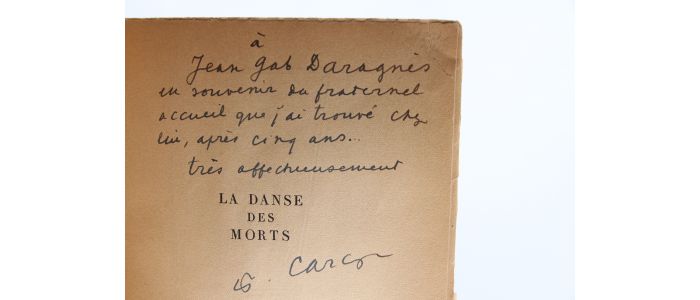 à
Jean Gab Daragnès
en souvenir du fraternel
accueil que j'ai trouvé chez
lui, après cinq ans...
très affectueusement
LA DANSE
DES
MORTS
F. Carco